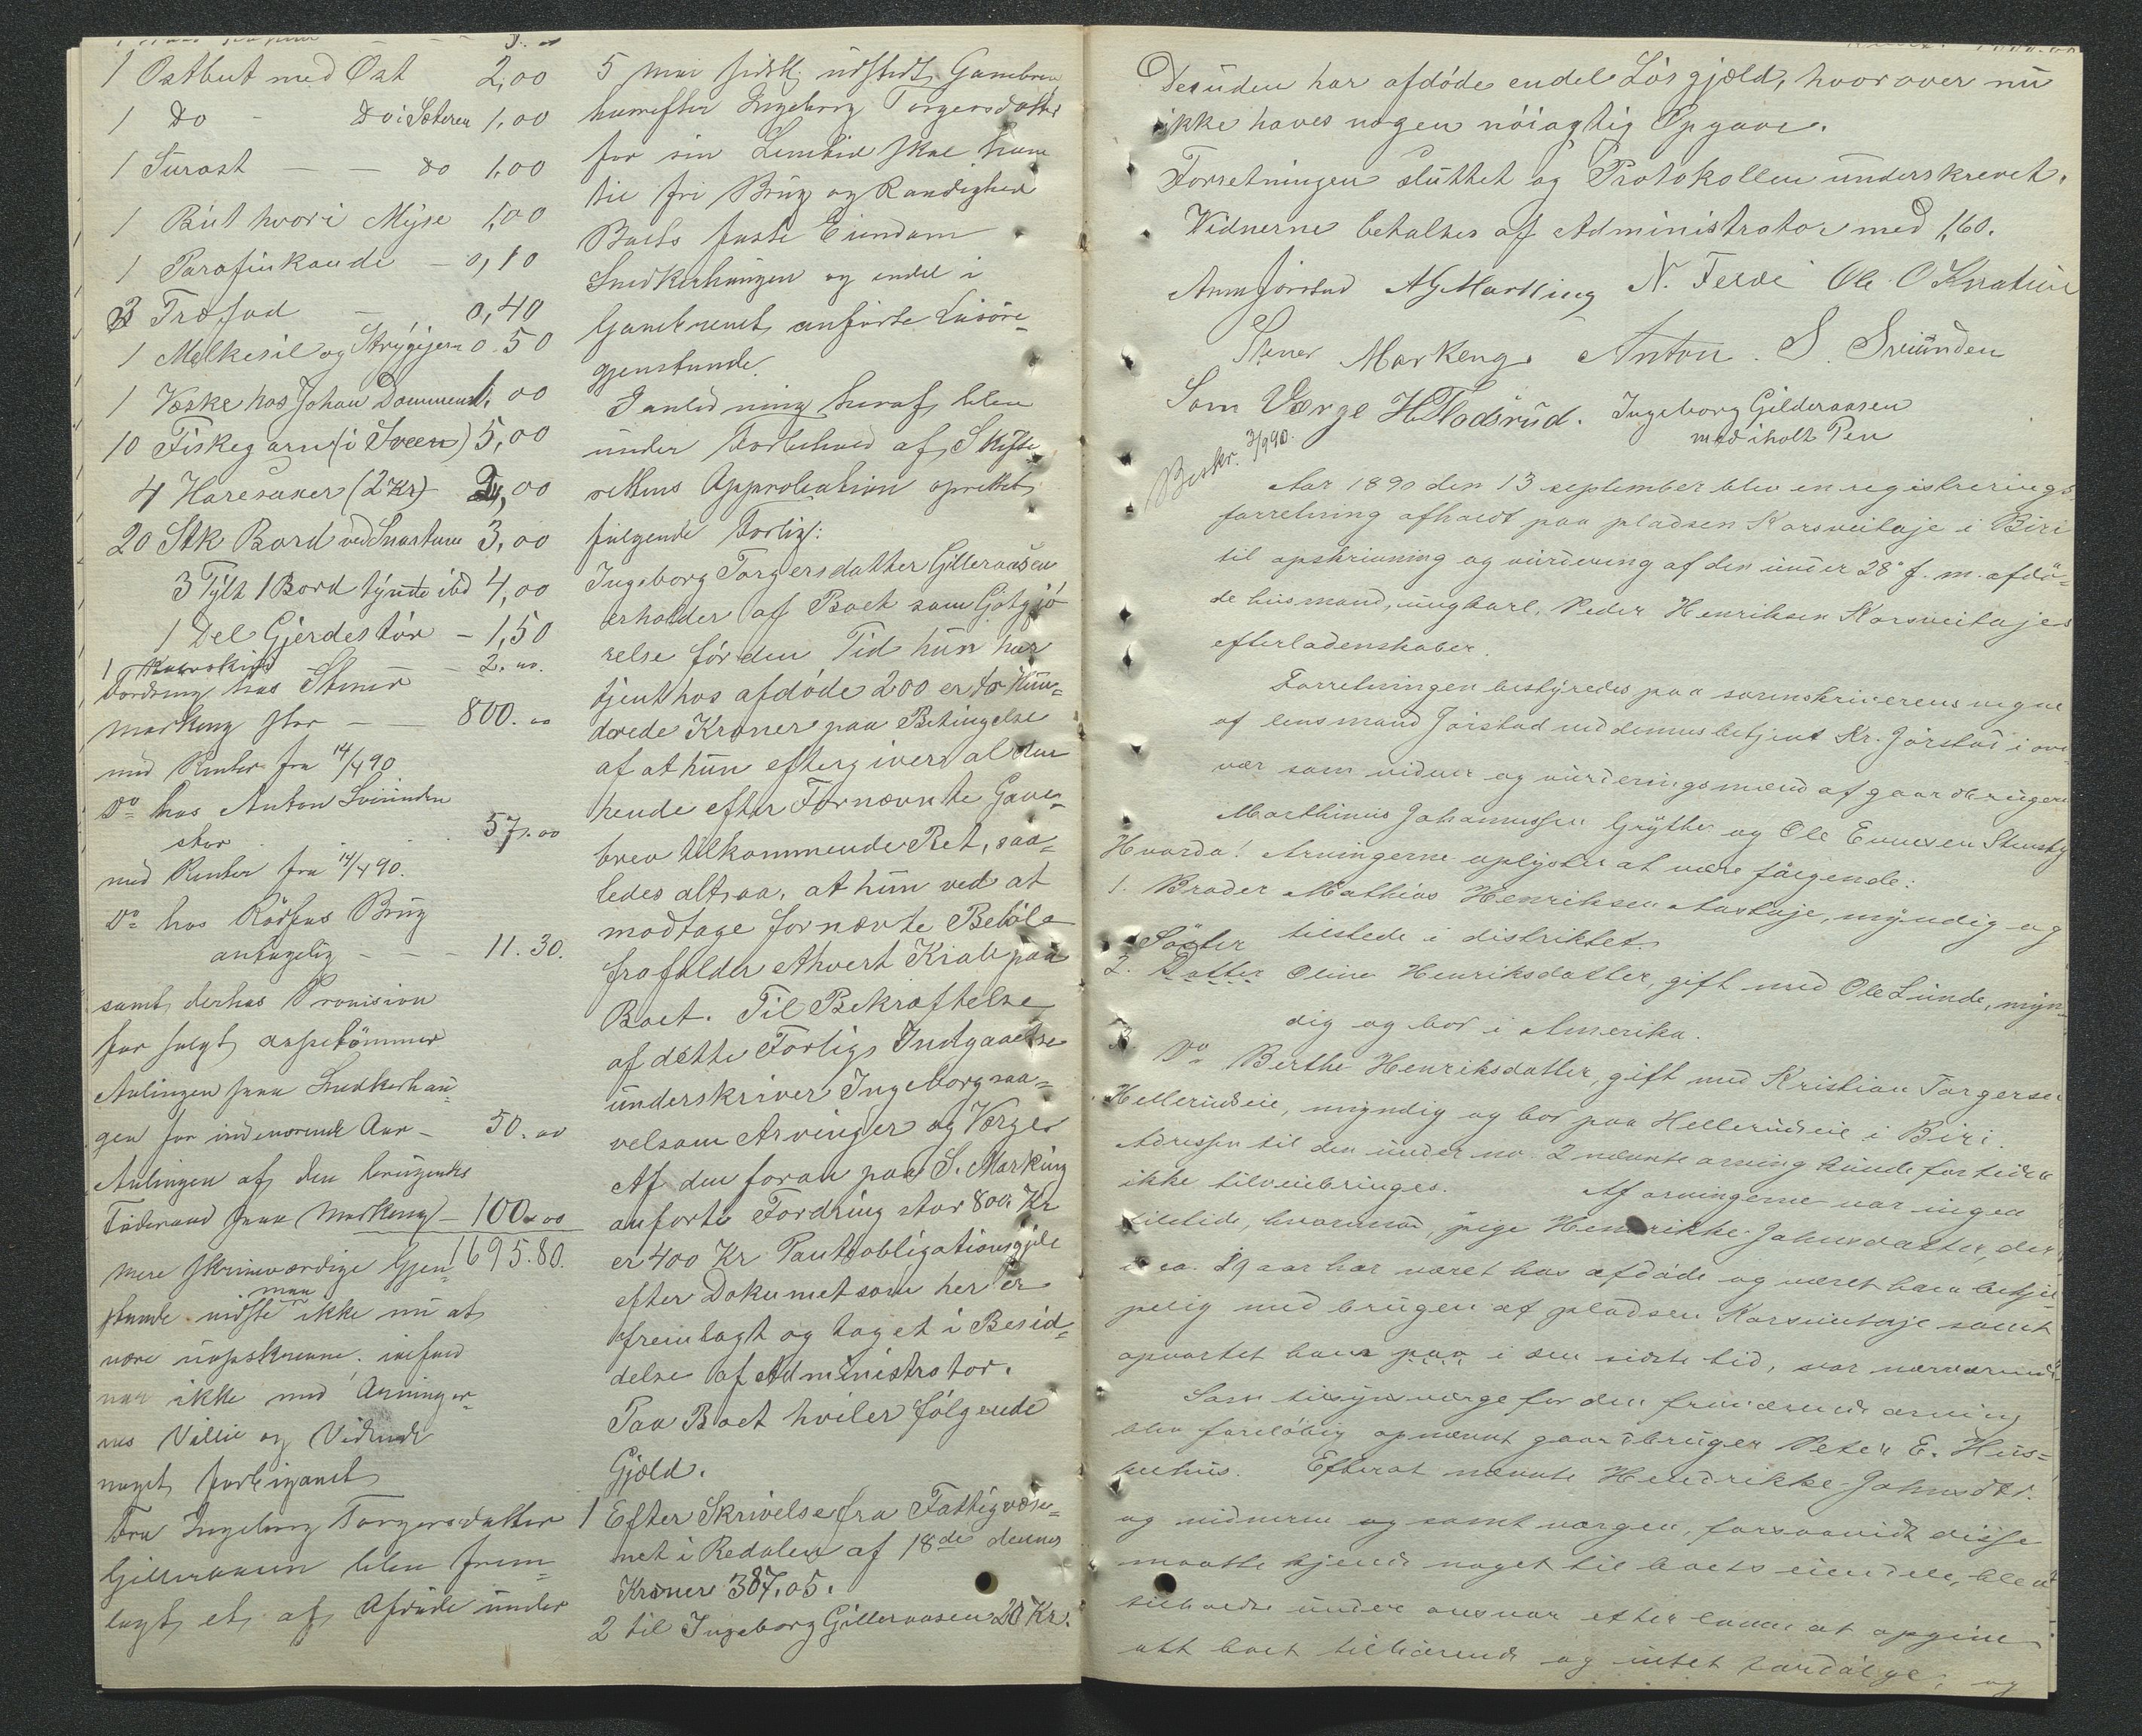 1 Ostbut med Ost 2,00
1 Do - Do i Sæteren 1,00
1 Surost — — do 1,00
1 But hvori Myse 1,00
1 Parafinkande — 0,10
3 Træfad — 0,40
1 Melkesil og Strygejern 0.50
1 Væske hos Johan Dammen 1,00
10 Fiskegarn (i Sveen) 5,00
4 Haresaxer (2 Kr) 2,00
20 Stk Bord ved Snartum 3,00
3 Tylt 1 Bord tynde ibd 4,00
1 Del Gjerdestör — 1,50
1 2.00.
Fordring hos Stener
Markeng stor — — 800.00
med Renter fra 14/4 90
Do hos Anton Sviunden
stor 57.00
med Renter fra 14/4 90.
Do hos Rödfos Brug
antagelig — — — 11.30.
samt derhos Provision
for solgt aspetömmer
Avlingen paa Snedkerhau-
gen for indeværende Aar — 50.00
Avlingen af den brugende
Föderaad paa Markeng — 100.00
1695.80.
Mere skriveværdige Gjen-
stande vidste man ikke nu at
være uopskrevne.
var ikke med Arvinger-
nes Villie og Vidende
noget fortiganet
Fra Ingeborg Torgersdatter
Gilleraasen blev frem-
lagt et af Afdøde under
5 Mai sidstl. udstedt Gavebrev
hvorefter Ingeborg Torgersdatter
for sin Levetid skal have
til fri Brug og Raadighed
Boets faste Eiendom
Snedkerhaugen og endel i
Gavebrevet anførte Lösöre-
gjenstande.
I anledning heraf blev
under Forbehold af Skifte-
rettens Approbation oprettet
fulgende Forlig:
Ingeborg Torgersdatter Gilleraasen
erholder af Boet som Gotgjö-
relse för den Tid hun har
tjent hos afdöde 200 er to Hun-
drede Kroner paa Betingelse
af at hun eftergiver al den
hende efter Fornævnte Gave-
brev tilkommende Ret, saa-
ledes altsaa, at hun ved at
modtage fornævte Belöb
frafalder ethvert Krav paa
Boet. Til Bekræftelse
af dette Forligs Indgaaelse
underskriver Ingeborg saa-
velsom Arvinger og Værger
Af den foran paa S. Markeng
anförte Fordring stor 800 Kr
er 400 Kr Pantobligationsgjæld
efter Dokumet som her er
fremlagt og taget i Besid-
delse af Administrator.
Paa Boet hviler fölgende
Gjæld.
1 Efter Skrivelse fra Fattigvæse-
net i Redalen af 18de dennes
Kroner 387,05.
2 til Ingeborg Gilleraasen 20 Kr.
Desuden har afdöde endel Lösgjæld, hvorover nu
ikke haves nogen nöiagtig Opgave.
Forretningen sluttet og Protokollen underskrevet.
Vidnerne betaltes af Administrator med 1,60.
Jörstad N. Ole O
Stener Markeng. Anton. S. Sviunden
Som Værge H Flodsrud. Ingeborg Gilderaasen
med iholt Pen
Beskr. 3/9 90.
Aar 1890 den 13 september blev en registrerings-
forretning afholdt paa pladsen Korsveitaje i Biri
til opskrivning og vurdering af den under 28de f. m. afdö-
de husmand, ungkarl, Peder Henriksen Korsveitajes
efterladenskaber.
Forretningen bestyredes paa sorenskriverens vegne
af lensmand Jörstad ved dennes betjent Kr. Jörstad i over-
vær som vidner og vurderingsmænd af gaardbrugere
Marthinus Johannessen Grythe og Ole Evensen Stensby
Hvorda! Arvingerne oplystes at være fölgende:
1. Broder Mathias Henriksen Aastaje, myndig og
tilstede i distriktet.
2. Söster Datter Oline Henriksdatter, gift med Ole Lunde, myn-
dig og bor i Amerika.
3. Do Berthe Henriksdatter, gift med Kristian Torgersen
Hellerudseie, myndig og bor paa Hellerudseie i Biri.
Adressen til den under no. 2 nævnte arving kunde for tiden
ikke tilveiebringes. Af arvingerne var ingen
tilstede, hvorimod, pige Hendrikke Johnsdatter, der
i ca. 19 aar har været hos afdöde og været ham behjel-
pelig med brugen af pladsen Korsveitaje samt
opvartet ham paa i sen sidste tid, var nærværende.
Som tilsynsværge for den fraværende arving
blev foreløbig opnævnt gaardbruger Peter E. Hus-
Efterat nævnte Hendrikke Johnsdtr.
og vidnerne og samt værgen, forsaavidt disse
maatte kjende noget til boets eiendele, blev
tilholdt under ansvar efter loven at opgive
alt boet tilhörende og intet fordölge, og